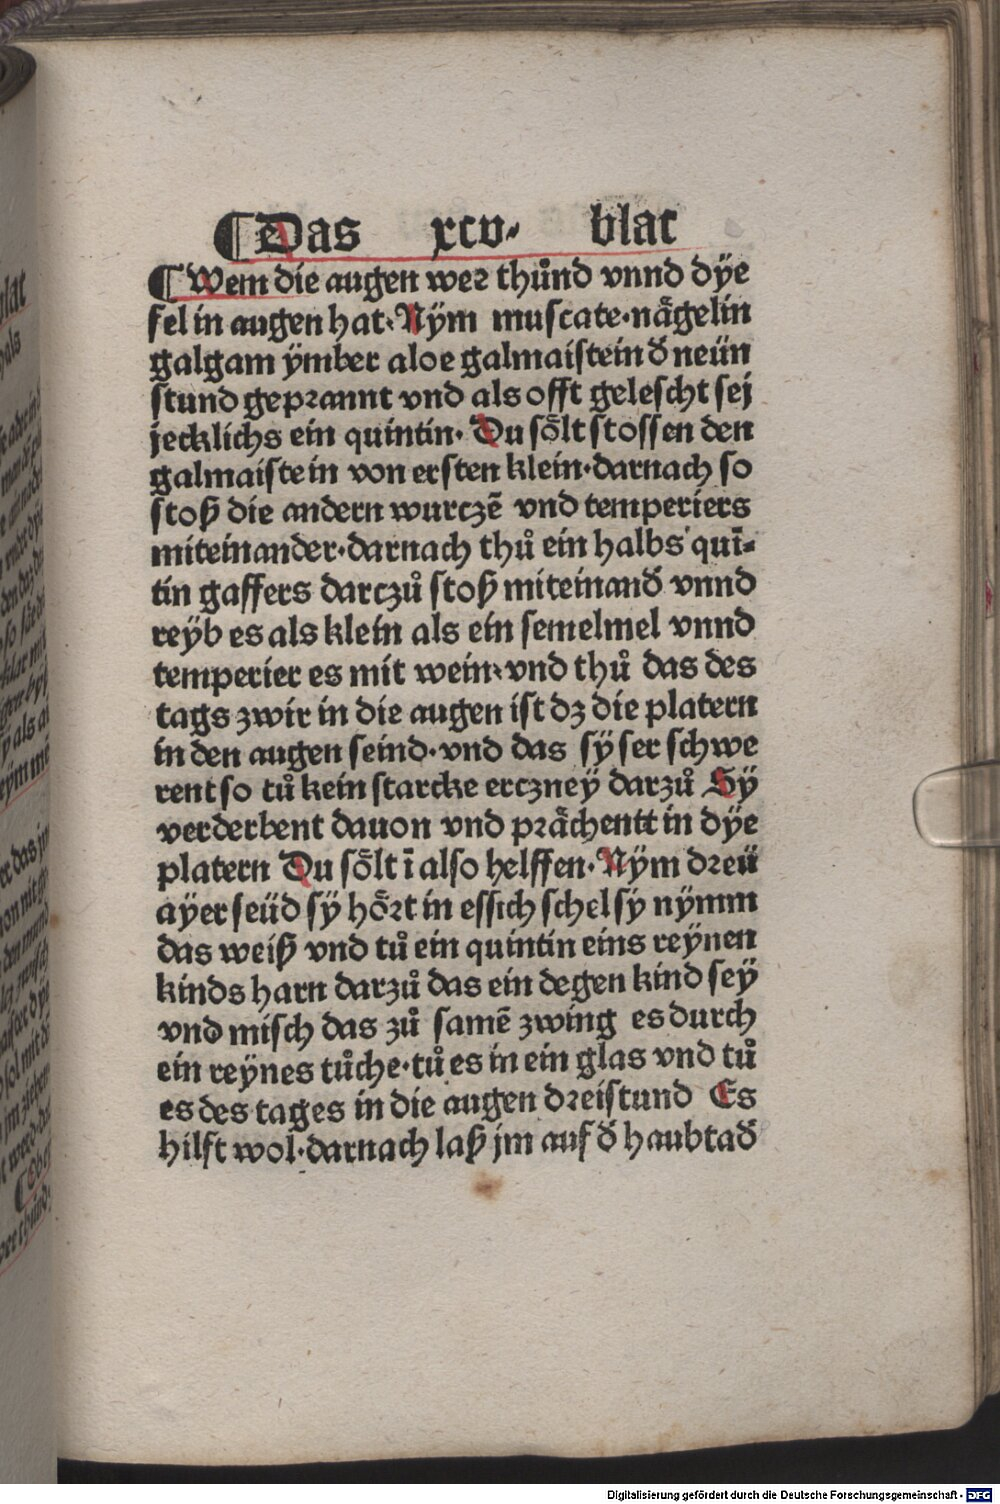 ¶Das xcv. blat
¶Wem die augen wee thůnd vnnd dÿe
fel in augen hat. Nÿm muscate. nägelin
galgam ÿmber aloe galmaistein đ neün
stund geprannt vnd als offt gelescht sej
jecklichs ein quintin. Du sölt stossen den
galmaistein von ersten klein. darnach so
stoß die andern wurczē vnd temperiers
miteinander. darnach thů ein halbs quī⸗
tin gaffers darczů stoß miteinanđ vnnd
reÿb es als klein als ein semelmel vnnd
temperier es mit wein. vnd thů das des
tags zwir in die augen ist dz die platern
in den augen seind. vnd das sÿ ser schwe
rent so tů kein starcke erczneÿ darzů Sÿ
verderbent dauon vnd prächentt in dÿe
platern Du sölt ī also helffen. Nÿm dreü
aÿer seüd sÿ hört in essich schel sy nÿmm
das weiß vnd tů ein quintin eins reÿnen
kinds harn darzů das ein degen kind seÿ
vnd misch das zů samē zwing es durch
ein reÿnes tůche. tů es in ein glas vnd tů
es des tages in die augen dreistund Es
hilft wol. darnach laß jm auf đ haubtađ
Digitalisierung gefördert durch die Deutsche Forschungsgemeinschaft - DFG